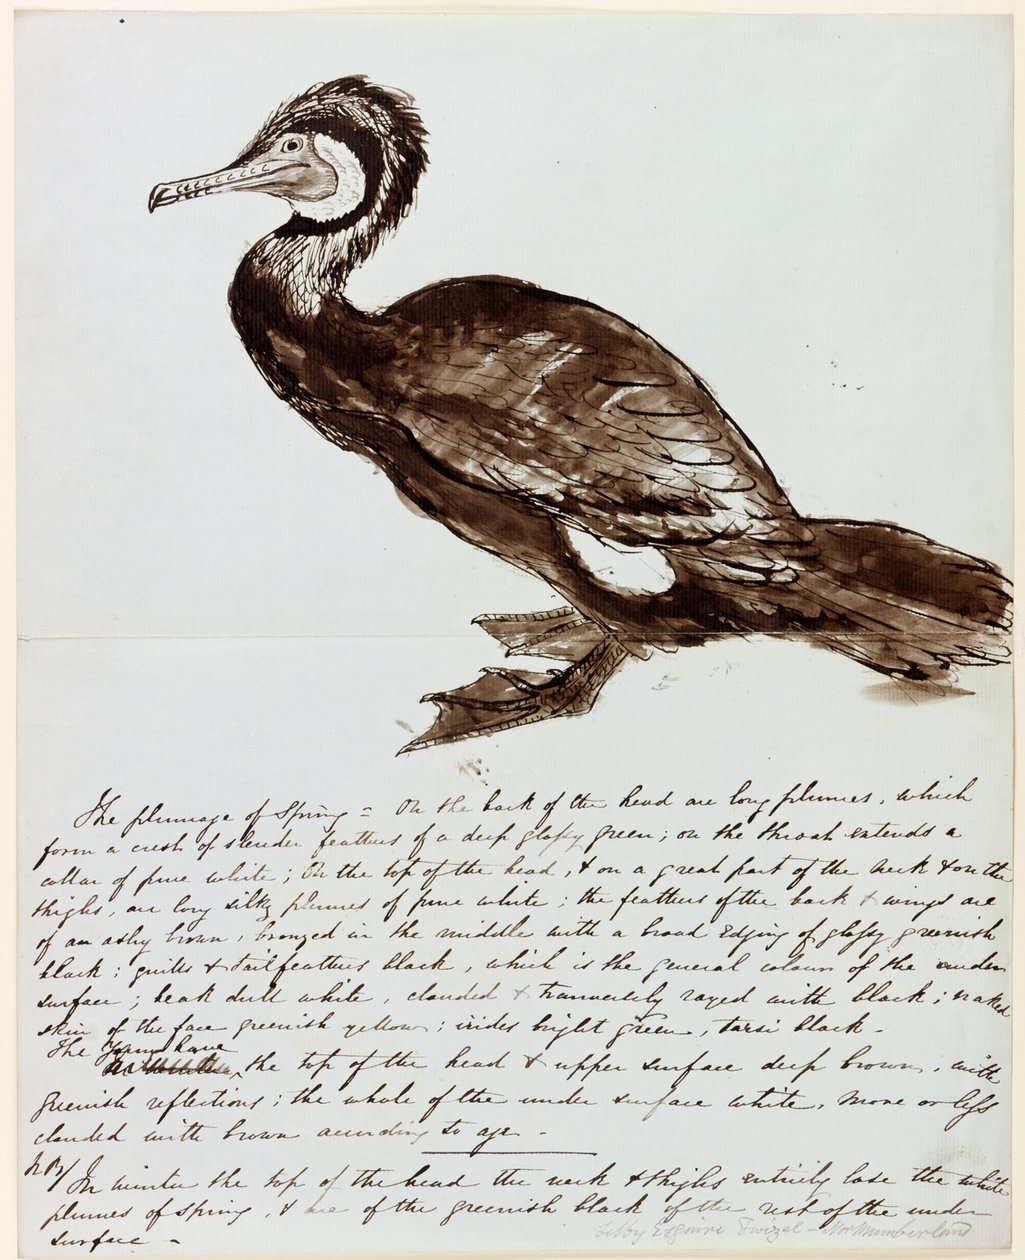 The plumage of Spring = On the back of the head are long plumes, which
form a crest of slender feathers of a deep glossy green; on the throat extends a
collar of pure white; On the top of the head, & on a great part of the neck & on the
thighs, are long silky plumes of pure white; the feathers of the back & wings are
of an ashy brown, bronzed in the middle with a broad edging of glossy greenish
black; quills & tailfeathers black, which is the general colour of the under
surface; beak dull white, clouded & transversely rayed with black; naked
skin of the face greenish yellow; irides bright green, tarsi black -
The Young have
the top of the head & upper surface deep brown, with
greenish reflections; the whole of the under surface white, more or less
clouded with brown according to age -
NB/ In winter the top of the head the neck & thighs entirely lose the white
plumes of spring, & are of the greenish black of the rest of the under
surface -
Selby Esquire Twizel Northumberland